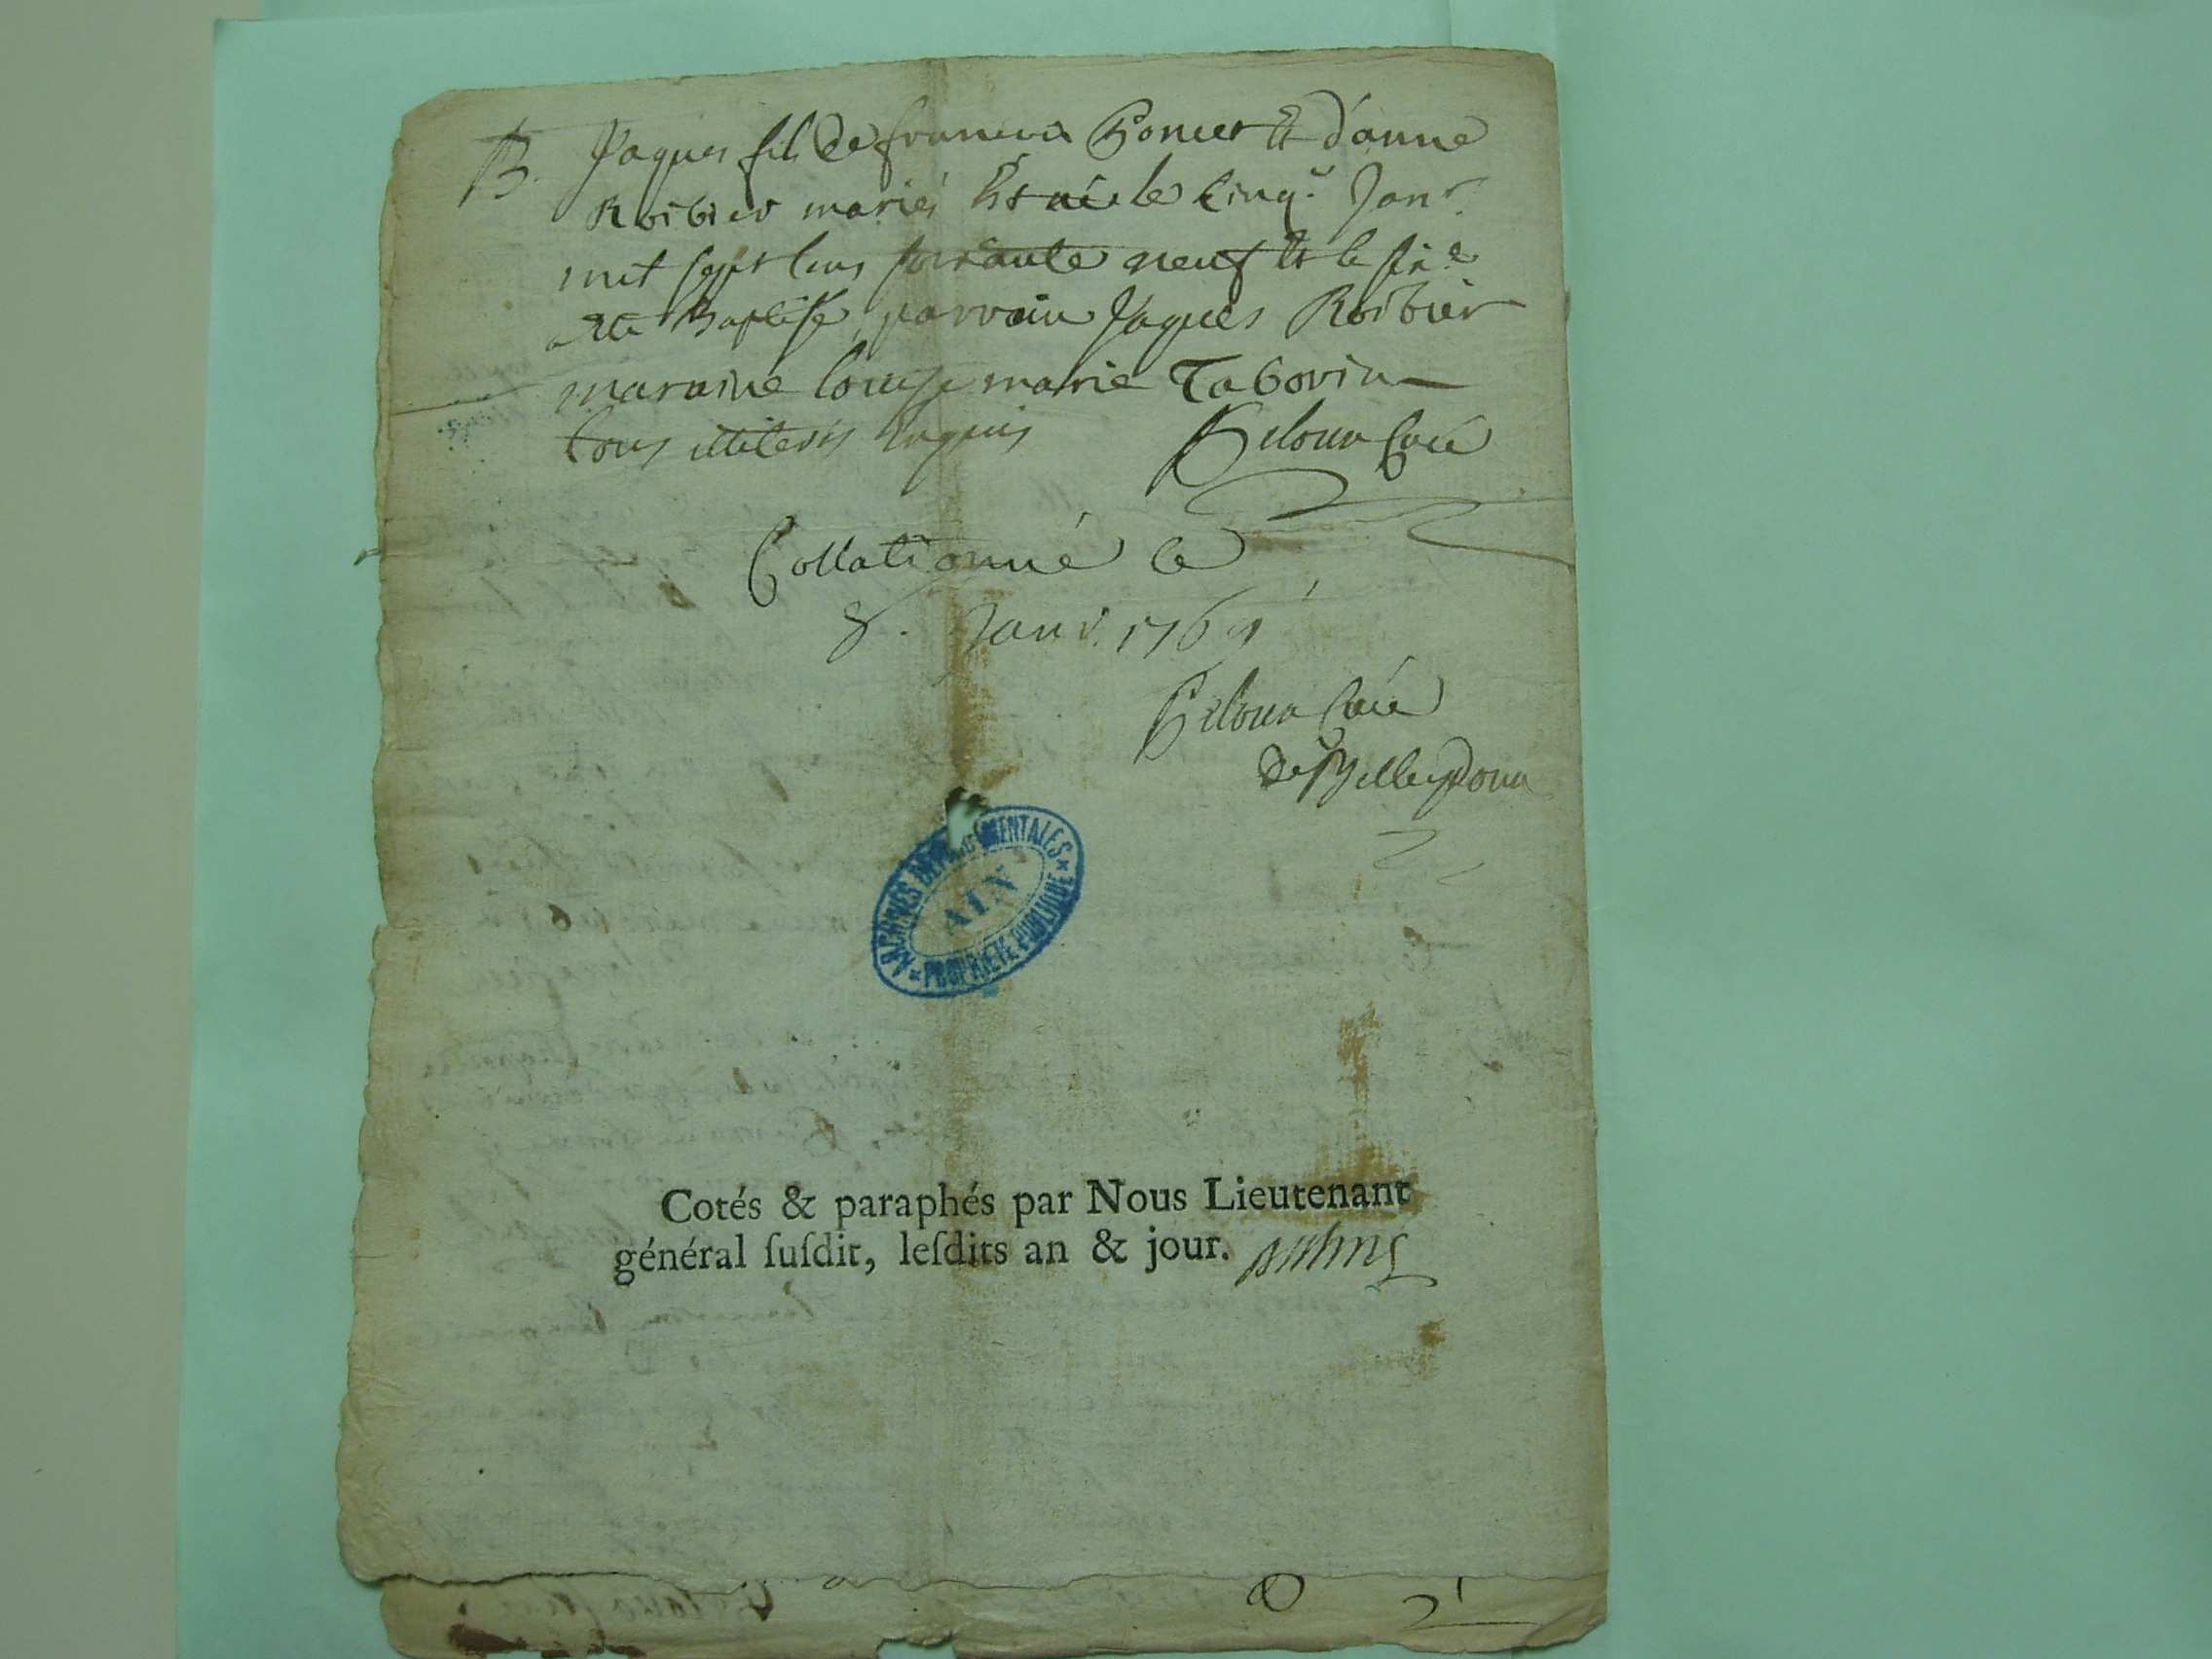 B. Jaques fils de francois Poncet Et d'anne
Roibier mariés Est née le Cinq.e Janr.
mil sept Cens soixante neuf Et le six.e
a Eté Baptisé, parrain Jaques Roibier
maraine Louise marie Taborin
tous illiteris Enquis Beloua Curé
Collationné le
8. Janv. 1769
Beloua Curé
de Belleydoux
ARCHIVES DÉPARTEMENTALES
AIN
PROPRIÉTÉ PUBLIQUE
Cotés & paraphés par Nous Lieutenant
général ſuſdit, leſdits an & jour.